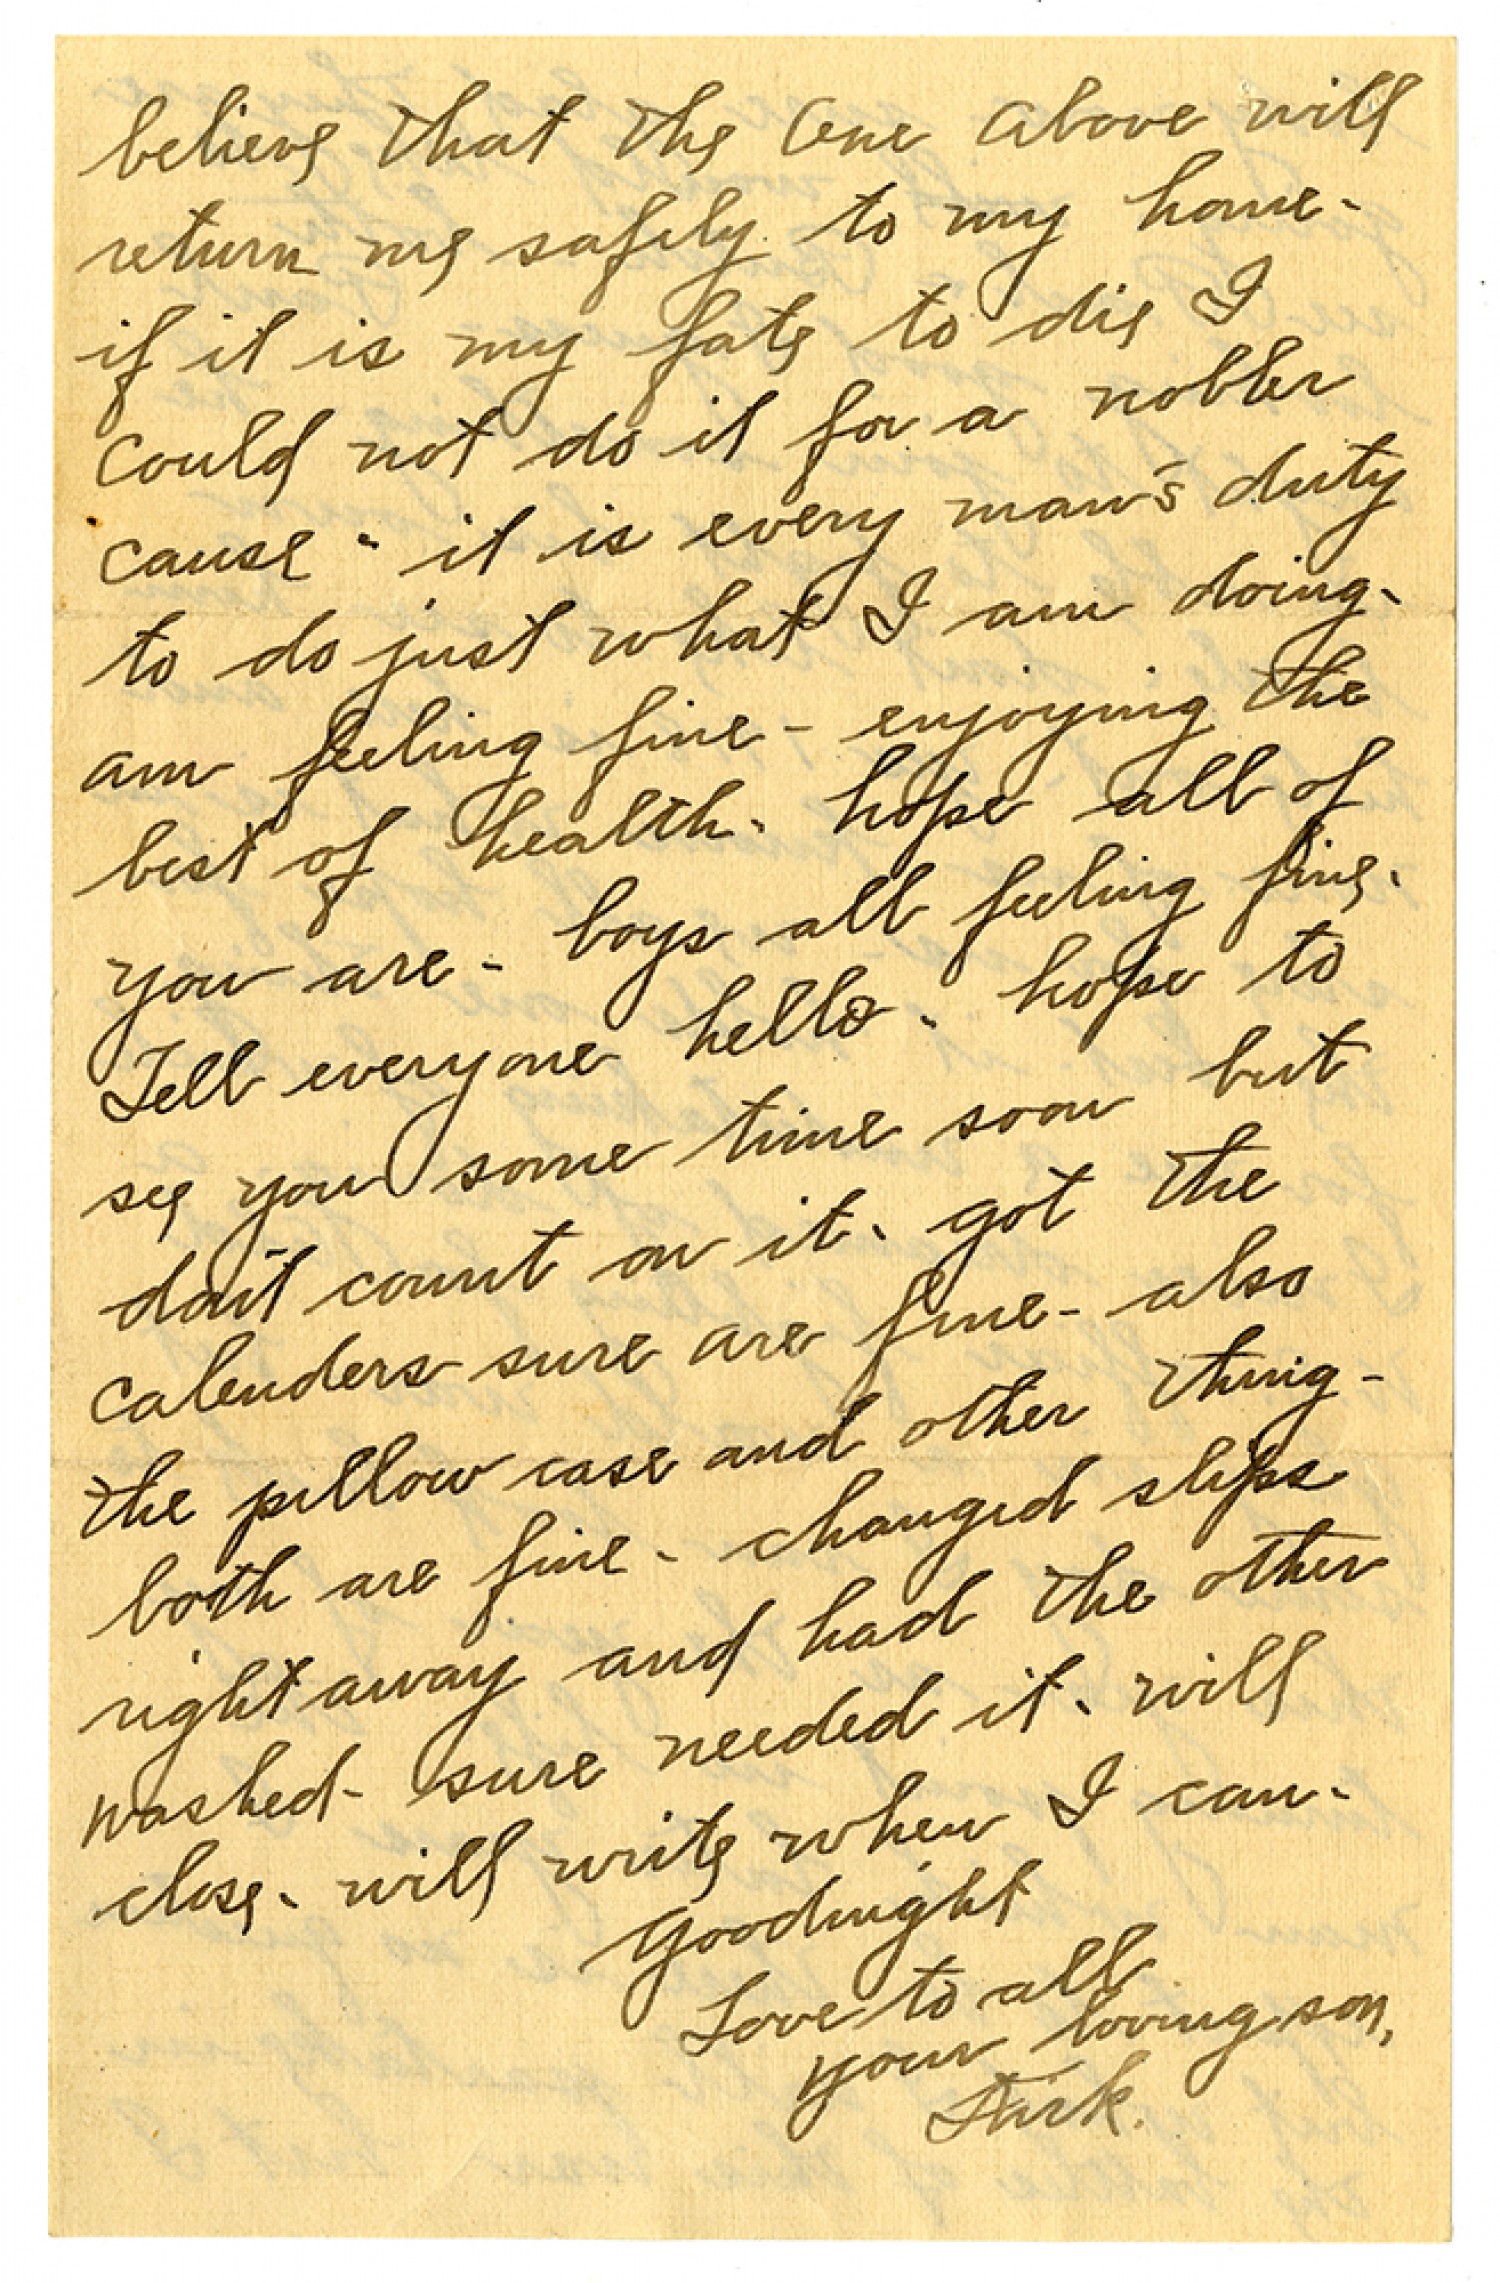 believe that the One Above will
return me safely to my home-
if it is my fate to die I
could not do it for a nobler
cause - it is every man's duty
to do just what I am doing-
am feeling fine - enjoying the
best of health - hope all of
you are - boys all feeling fine.
Tell everyone hello - hope to
see you some time soon but
don't count on it - got the
calenders sure are fine - also
the pillow case and other thing -
both are fine - changed slips
right away and had the other
washed - sure needed it - will
close - will write when I can -
Goodnight
Love to all
your loving son,